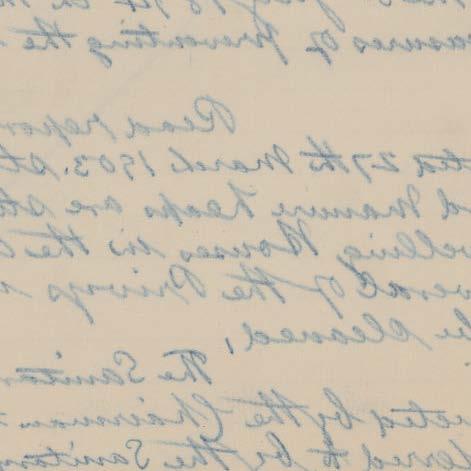 asures of preventing the
Read repor
ted 27th March 1903. St
d Manure heaps are
elling Houses in the
veral of the Privys
be cleaned,
The Sanitar
ected by the Chairman
the Sanitar